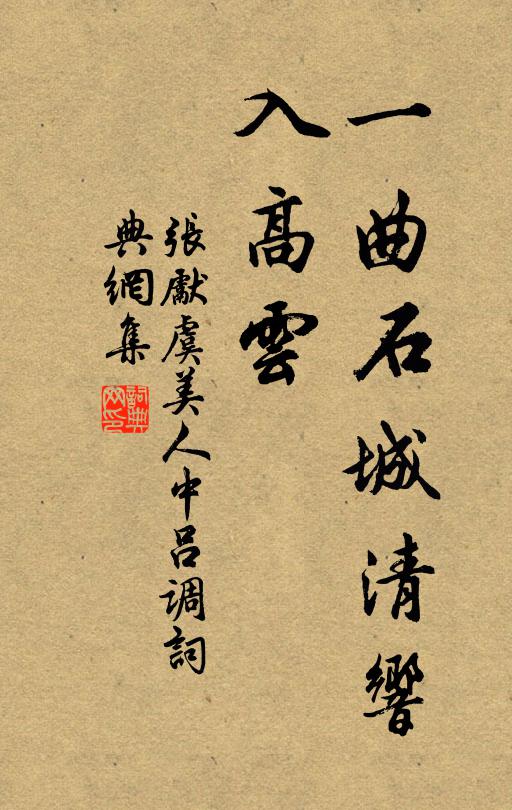 一曲石城清響
入高雲
張獻虞美人中呂調詞
典網集
詞典
网印